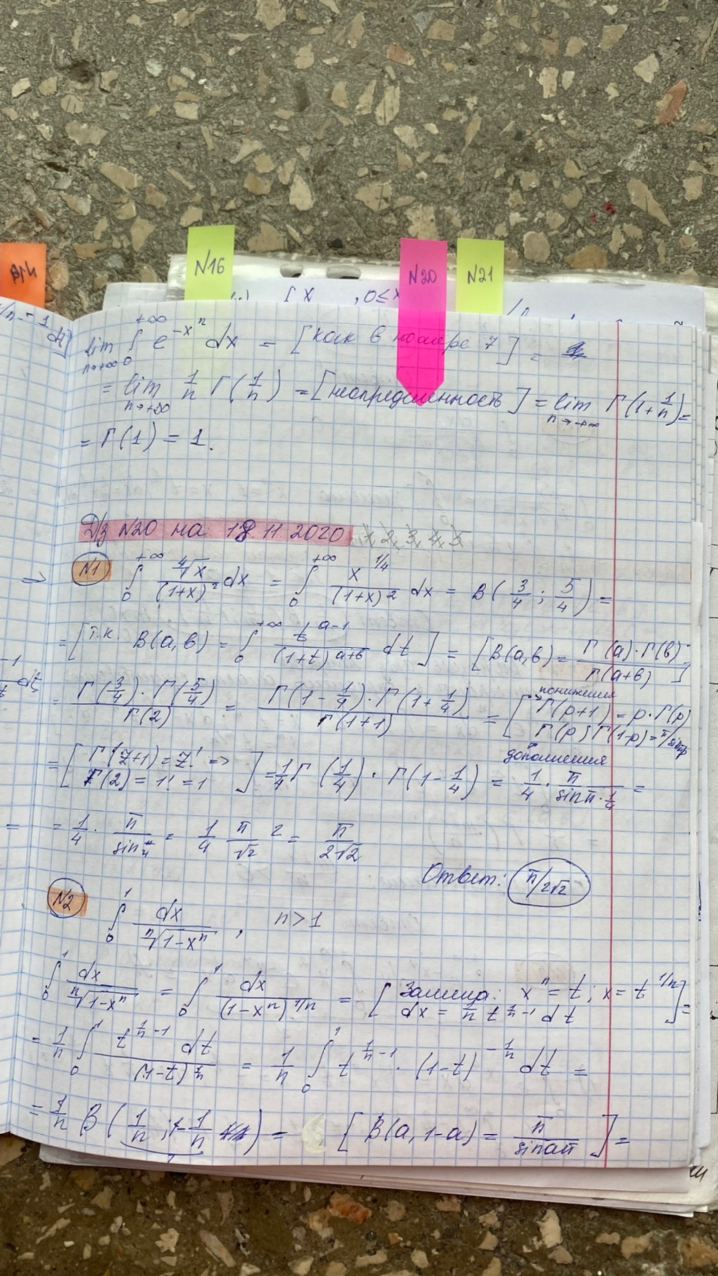 N16
N20
N21
lim ∫₀^{+∞} e^{-xⁿ} dx = [как в номере 7] =
n→+∞
= lim 1/n Г(1/n) = [неопределенность] = lim Г(1+1/n) =
n→+∞ n→+∞
= Г(1) = 1.
Д/з N20 на 18 11 2020 1 2 3 4 5
N1 ∫₀^{+∞} ⁴√x/(1+x)² dx = ∫₀^{+∞} x^{1/4}/(1+x)² dx = B(3/4; 5/4) =
= [т.к. B(a,b) = ∫₀^{+∞} t^{a-1}/(1+t)^{a+b} dt] = [B(a,b) = Г(a)·Г(b)/Г(a+b)]
= Г(3/4)·Г(5/4)/Г(2) = Г(1-1/4)·Г(1+1/4)/Г(1+1) = [понижения Г(p+1) = p·Г(p)
Г(p)Г(1-p) = π/sinπp
дополнения
= [Г(z+1) = z! => Г(2) = 1! = 1] = 1/4 Г(1/4)·Г(1-1/4) = 1/4 · π/sinπ·1/4 =
= 1/4 · π/sin π/4 = 1/4 π/√2 2 = π/2√2
Ответ: π/2√2
N2 ∫₀¹ dx/ⁿ√1-xⁿ , n>1
∫₀¹ dx/ⁿ√1-xⁿ = ∫₀¹ dx/(1-xⁿ)^{1/n} = [Замена: xⁿ = t; x = t^{1/n}
dx = 1/n t^{1/n-1} dt] =
= 1/n ∫₀¹ t^{1/n-1} dt/(1-t)^{1/n} = 1/n ∫₀¹ t^{1/n-1} · (1-t)^{-1/n} dt =
= 1/n B(1/n; 1-1/n) = [B(a,1-a) = π/sinaπ] =